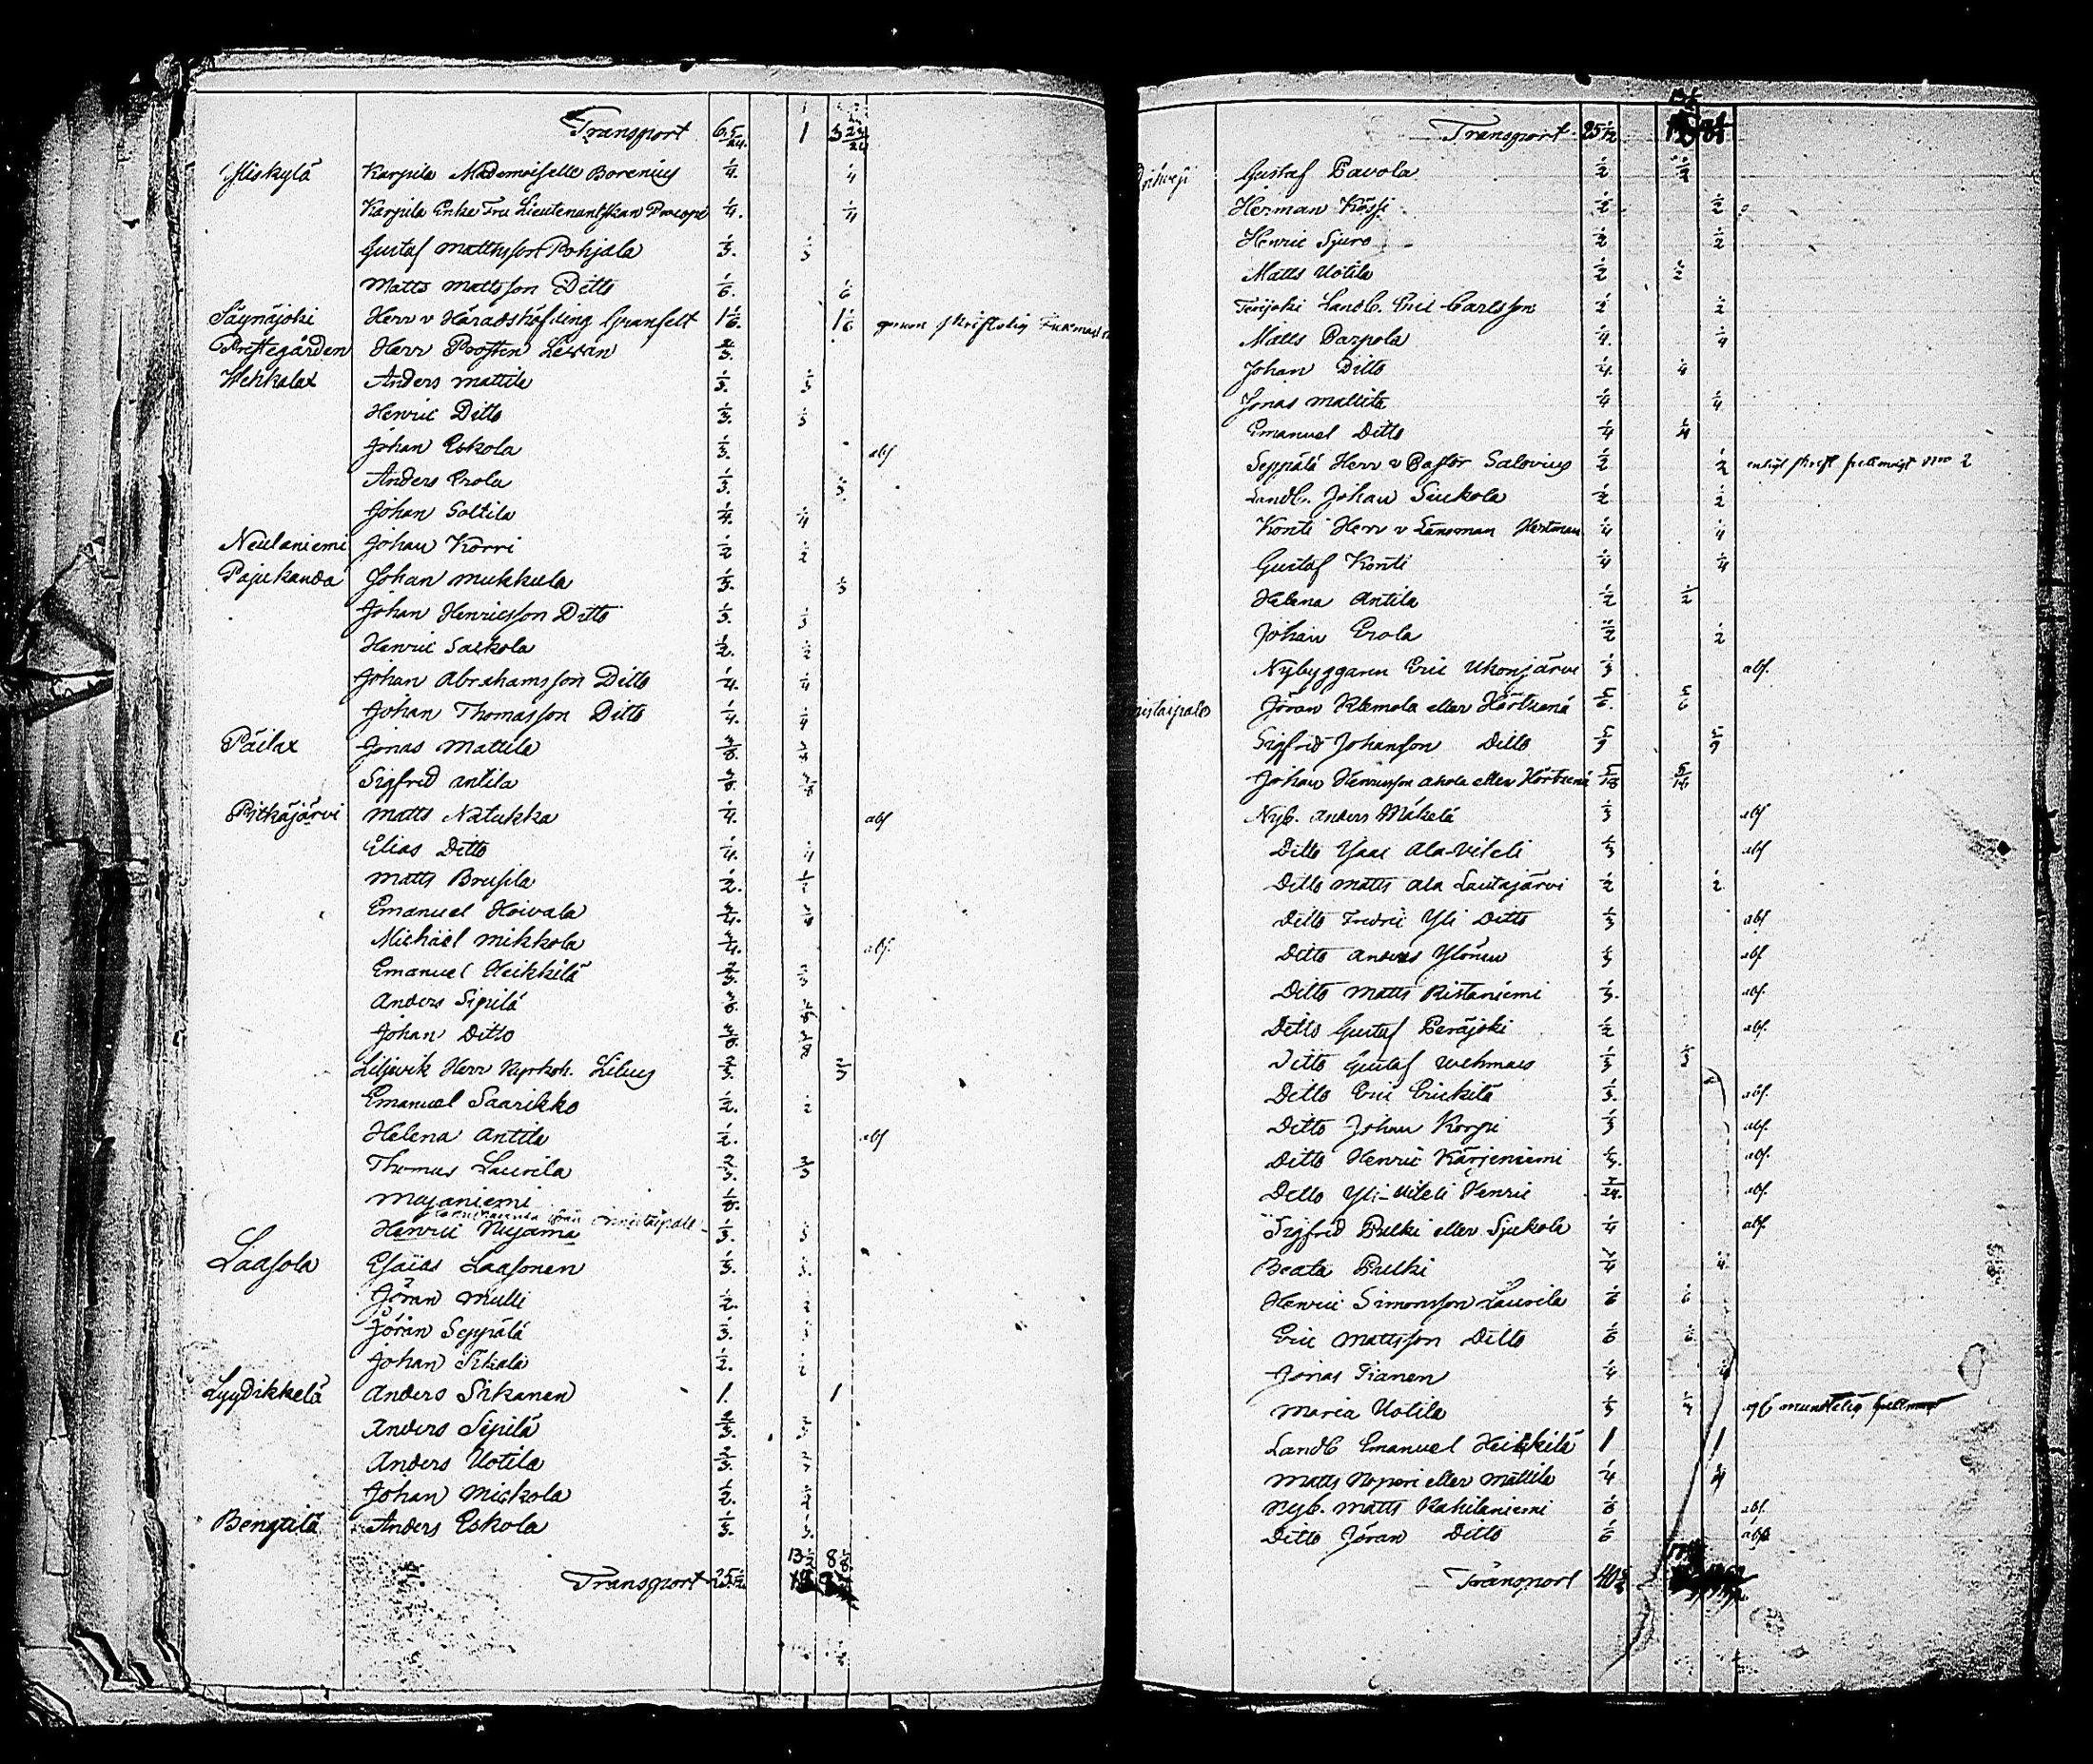 Transport 6 5/24. 1 3 23/24
Yliskylä Karpila Mademoiselle Borenius 1/4. 1/4
Karpila Enke Fru Lieutenantskan Procopé 1/4. 1/4
Gustaf Mattsson Pohjala 1/3. 1/3
Matts Mattsson Ditto 1/6. 1/6
Säynäjoki Herr v Häradshöfding Granfelt 1 1/6. 1 1/6 genom skriftelig
Prestegården Herr Prosten Levan 2/3.
Wehkalax Anders Mattila 1/3. 1/3
Henric Ditto 1/3. 1/3
Johan Eskola 1/3. abs
Anders Erola 1/3. 1/3
Johan Soltila 1/4. 1/4
Neulaniemi Johan Korri 1/2 1/2
Pajukanda Johan Mukkula 1/3. 1/3
Johan Henricsson Ditto 1/3. 1/3
Henric Sackola 1/2. 1/2
Johan Abrahamsson Ditto 1/4. 1/4
Johan Thomasson Ditto 1/4. 1/4
Päilax Jonas Mattila 3/8. 3/8
Sigfred Antila 3/8. 3/8
Pitkäjärvi Matts Natukka 1/4. abs
Elias Ditto 1/4. 1/4
Matts Brusila 1/2. 1/2
Emanuel Hoivala 3/4. 3/4
Michael Mikkola 3/4. abs.
Emanuel Heikkilä 2/3. 2/3
Anders Sipilä 3/8. 3/8
Johan Ditto 3/8. 3/8
Liljevik Herr Kyrkoh. Lilius 2/3. 2/3
Emanuel Saarikko 1/2. 1/2
Helena Antila 1/2. abs
Thomas Laurila 2/3. 2/3
Majaniemi 1/8.
Henric Nujama 1/3. 1/3
Laasola Esaias Laasonen 1/3. 1/3.
Jöran Mulli 1/2. 1/2
Jöran Seppälä 1/3. 1/3
Johan Sikala 1/2. 1/2
Lyydikkelä Anders Sirkanen 1. 1
Anders Sipilä 2/3. 2/3
Anders Uotila 2/3. 2/3
Johan Mickola 1/2. 1/2
Bengtilä Anders Eskola 1/3. 1/3.
13 1/2 8 1/8
Transport 25 1/12
Transport 25 1/12
Gustaf Pavola 1/2 1/2
Herman Kössi 1/2 1/2
Henric Sjuro 1/2 1/2
Matts Uotila 1/2 1/2
Terijoki Landb. Eric Carlsson 1/2 1/2
Matts Parpola 1/4. 1/4
Johan Ditto 1/4. 1/4
Jonas Mattila 1/4 1/4
Emanuel Ditto 1/4 1/4
Seppälä Herr v Pastor Salovius 1/2 1/2 enligt skrift fullmagt No 2
Landb. Johan Siukola 1/2 1/2
Konti Herr v Länsman Hertman 1/4 1/4
Gustaf Konti 1/4 1/4
Helena Antila 1/2 1/2
Johan Erola 1/2 1/2
Nybyggaren Eric Ukonjärvi 1/3 abs.
Jöran Klemola eller Hörtzenä 5/6. 5/6
Sigfrid Johansson Ditto 5/9 5/9
Johan Henricsson Ahola eller Hörtzenä 5/18 5/18
Nyb. Anders Mäkelä 1/3 abs
Ditto Ysac Ala-Viteli 1/3 abs
Ditto Matts Ala Lautajärvi 1/2 1/2
Ditto Fredric Yli Ditto 1/3 abs
Ditto Anders Ylönen 1/3 abs
Ditto Matts Ristaniemi 1/3. abs.
Ditto Gustaf Peräjoki 1/2 abs.
Ditto Gustaf Wehmas 1/3 1/3
Ditto Eric Erickilä 1/3. abs.
Ditto Johan Korpi 1/3 abs.
Ditto Henric Kärjeniemi 1/3. abs.
Ditto Yli-Viteli Henric 7/24. abs.
Sigfred Pulki eller Sjukola 1/4 abs.
Beata Pulki 1/4 1/4
Henric Simonsson Laurila 1/6 1/6
Eric Mattsson Ditto 1/6 1/6
Jonas Tianen 1/4 1/4
Maria Uotila 1/3 1/3 muntelig fullmagt
Landb Emanuel Heikkilä 1 1
Matts Nopori eller Mattila 1/4 1/4
Nyb. Matts Kahilaniemi 1/6 abs.
Ditto Jöran Ditto 1/6 abs
Transport